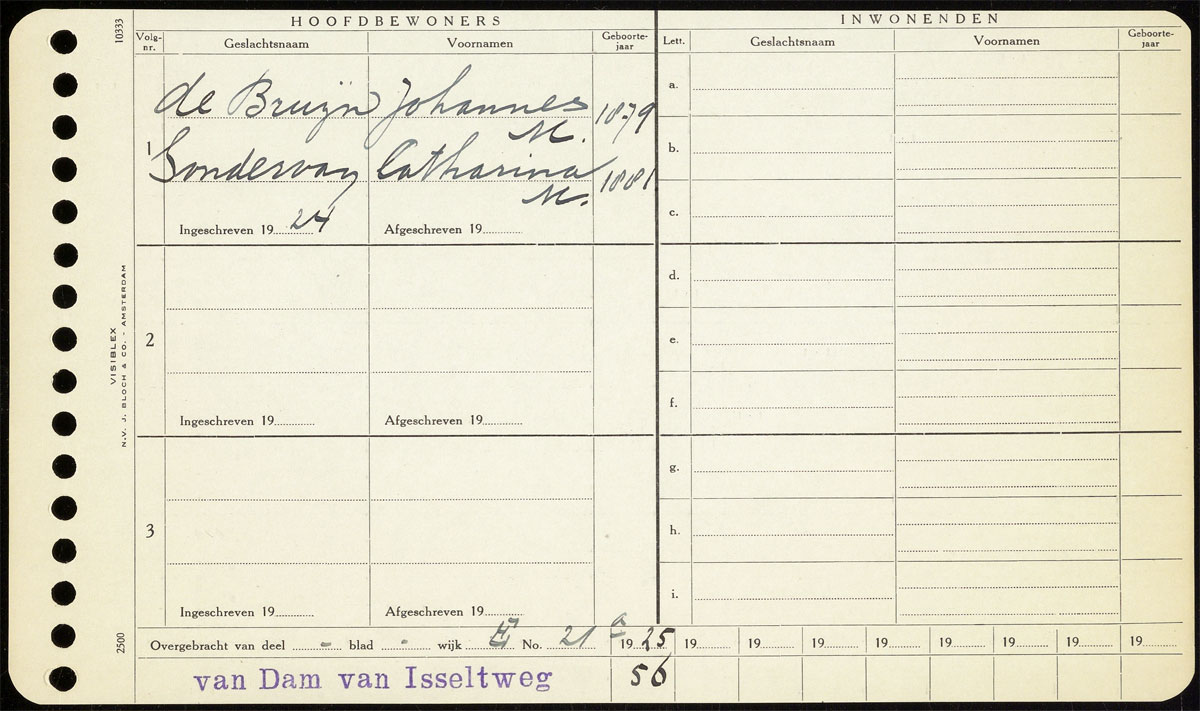 HOOFDBEWONERS
INWONENDEN
Volg-nr. Geslachtsnaam Voornamen Geboorte-jaar
Lett. Geslachtsnaam Voornamen Geboorte-jaar
10333
de Bruijn Johannes M. 1879
1
Sondervan Catharina M. 1881
Ingeschreven 19 24 Afgeschreven 19
2
Ingeschreven 19 Afgeschreven 19
3
Ingeschreven 19 Afgeschreven 19
a.
b.
c.
d.
e.
f.
g.
h.
i.
VISIBLEX
N.V. J. BLOCH & CO. - AMSTERDAM
2500
Overgebracht van deel - blad - wijk No. 21 a 19 25 19 19 19 19 19 19 19 19
van Dam van Isseltweg 56